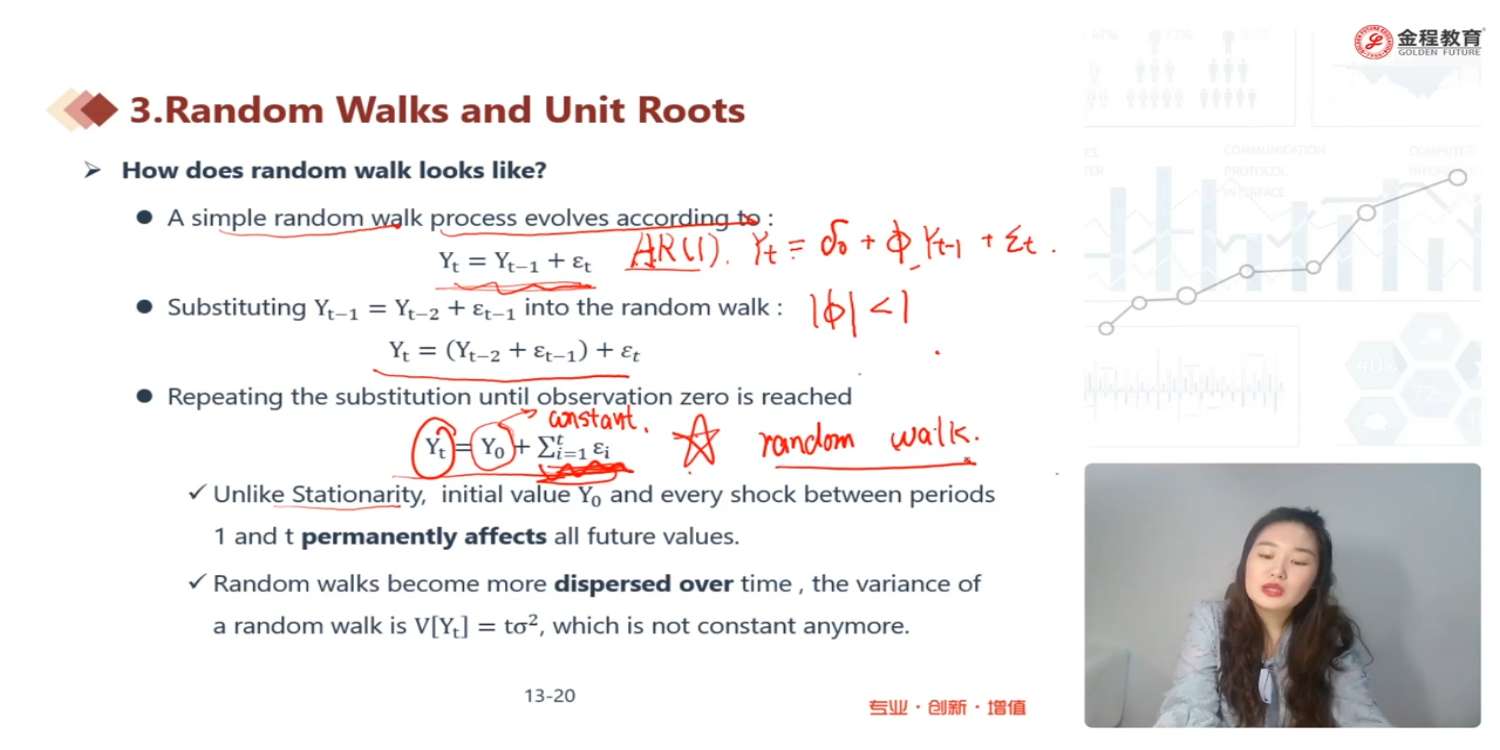 金程教育
GOLDEN FUTURE
3.Random Walks and Unit Roots
How does random walk looks like?
A simple random walk process evolves according to :
Yₜ = Yₜ₋₁ + εₜ
AR(1). Yₜ = δ₀ + ϕ Yₜ₋₁ + Σₜ .
Substituting Yₜ₋₁ = Yₜ₋₂ + εₜ₋₁ into the random walk :
|ϕ| < 1
Yₜ = (Yₜ₋₂ + εₜ₋₁) + εₜ
Repeating the substitution until observation zero is reached
constant.
Yₜ = Y₀ + ∑ᵗᵢ₌₁ εᵢ
random walk.
✓ Unlike Stationarity, initial value Y₀ and every shock between periods
1 and t permanently affects all future values.
✓ Random walks become more dispersed over time , the variance of
a random walk is V[Yₜ] = tσ², which is not constant anymore.
13-20
专业 · 创新 · 增值
COMMUNICATION
PROTOCOL